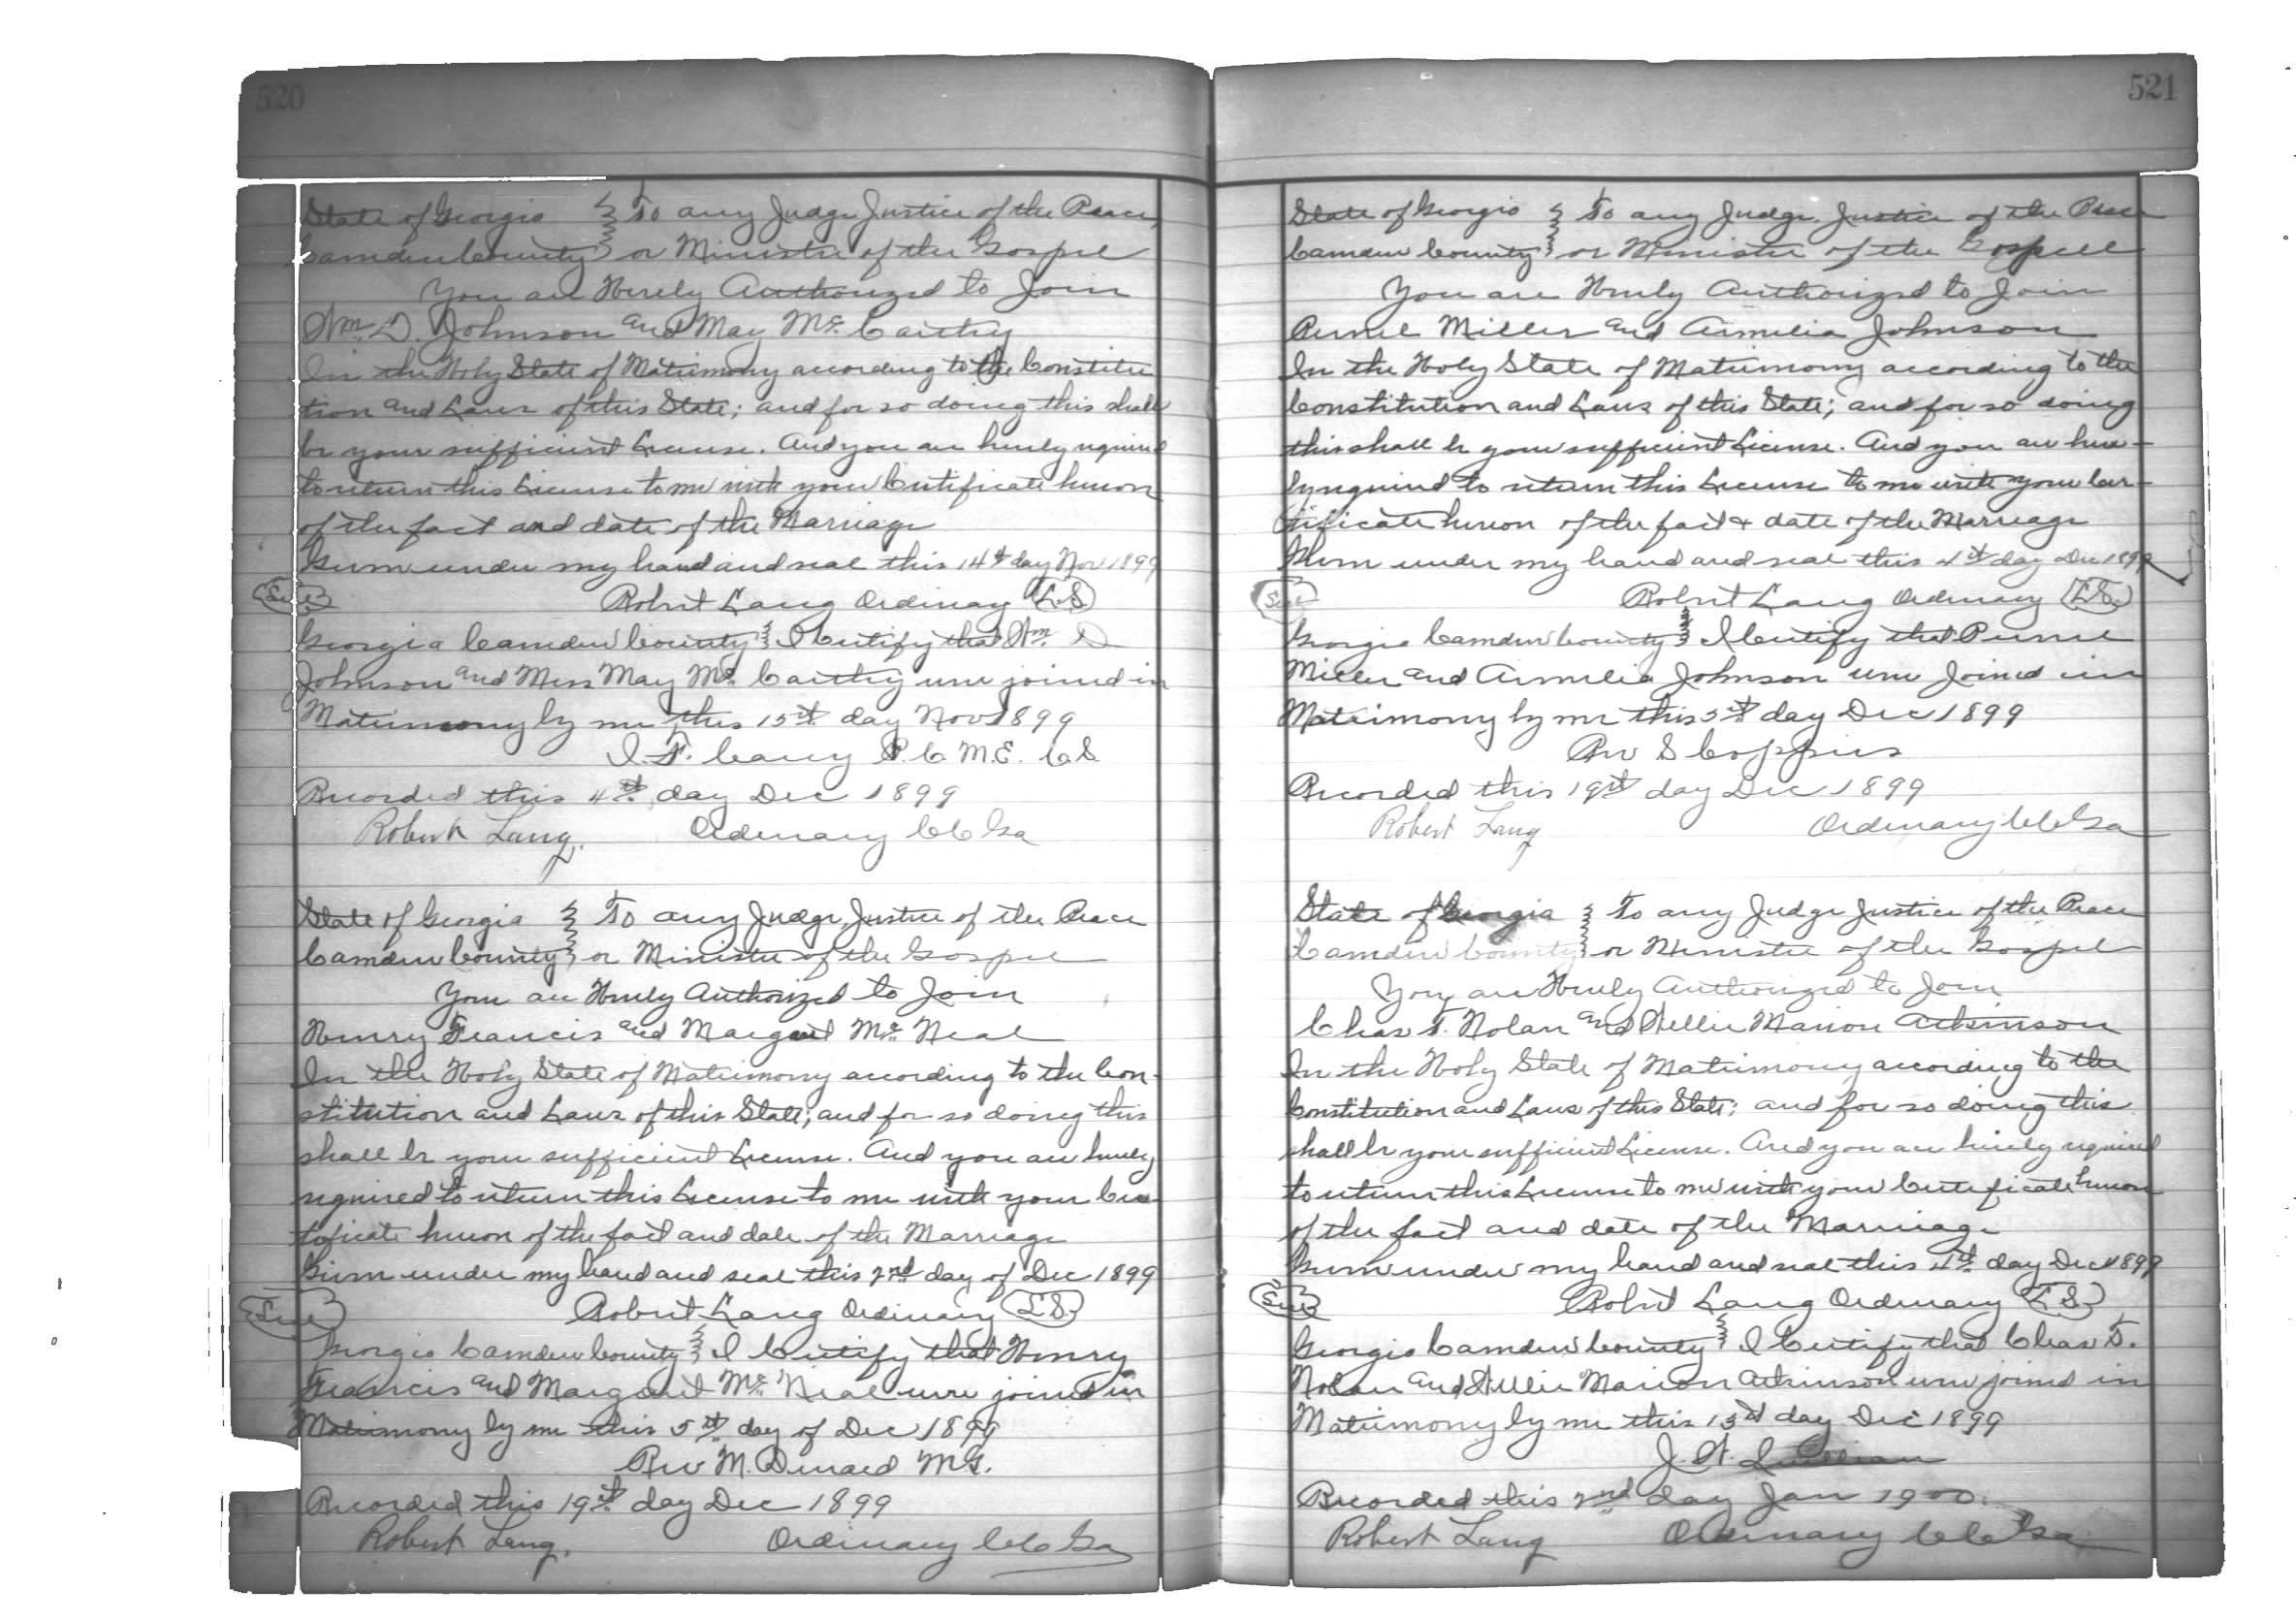 520
State of Georgia } To any Judge Justice of the Peace,
Camden County } or Minister of the Gospel
You are Hereby Authorized to Join
Wm. D. Johnson and May Mc. Carthy
In the Holy State of Matrimony according to the Constitu
tion and Laws of this State; and for so doing this shall
be your sufficient License. And you are hereby required
to return this License to me with your Certificate hereon
of the fact and date of the Marriage
Given under my hand and seal this 14th day Nov 1899
Seal Robert Lang Ordinary L.S
Georgia Camden County } I Certify that Wm. D
Johnson and Miss May Mc. Carthy were joined in
Matrimony by me this 15th day Nov 1899
I. F. Carey P.C. M.E. C.S.
Recorded this 4th day Dec 1899
Robert Lang. Ordinary C C Ga
State of Georgia } To any Judge, Justice of the Peace
Camden County } or Minister of the Gospel
You are Hereby Authorized to Join
Henry Francis and Margaret Mc. Neal
In the Holy State of Matrimony according to the Con-
stitution and Laws of this State; and for so doing this
shall be your sufficient License. And you are hereby
required to return this License to me with your Cer-
tificate hereon of the fact and date of the Marriage
Given under my hand and seal this 2nd day of Dec 1899
Seal Robert Lang Ordinary L.S.
Georgia Camden County } I Certify that Henry
Francis and Margaret Mc. Neal were joined in
Matrimony by me this 5th day of Dec 1899
Rev M. M.G.
Recorded this 19th day Dec 1899
Robert Lang. Ordinary C C Ga
521
State of Georgia } To any Judge, Justice of the Peace
Camden County } or Minister of the Gospell
You are Hereby Authorized to Join
Miller and Armelia Johnson
In the Holy State of Matrimony according to the
Constitution and Laws of this State; and for so doing
this shall be your sufficient License. And you are here-
by required to return this License to me with your Cer-
tificate hereon of the fact & date of the Marriage
Given under my hand and seal this 4th day Dec 1899
Seal Robert Lang Ordinary L.S.
Georgia Camden County } I Certify that
Miller and Armelia Johnson were Joined in
Matrimony by me this 5th day Dec 1899
Rev S Coppins
Recorded this 19th day Dec 1899
Robert Lang Ordinary C C Ga
State of Georgia } To any Judge Justice of the Peace
Camden County } or Minister of the Gospel
You are Hereby Authorized to Join
Chas T. Nolan and Nellie Marion Atkinson
In the Holy State of Matrimony according to the
Constitution and Laws of this State; and for so doing this
shall be your sufficient License. And you are hereby required
to return this License to me with your Certificate hereon
of the fact and date of the Marriage
Given under my hand and seal this 4th day Dec 1899
Seal Robert Lang Ordinary L.S.
Georgia Camden County } I Certify that Chas T.
Nolan and Nellie Marion Atkinson were joined in
Matrimony by me this 13th day Dec 1899
Recorded this 2nd day Jan 1900.
Robert Lang Ordinary C C Ga